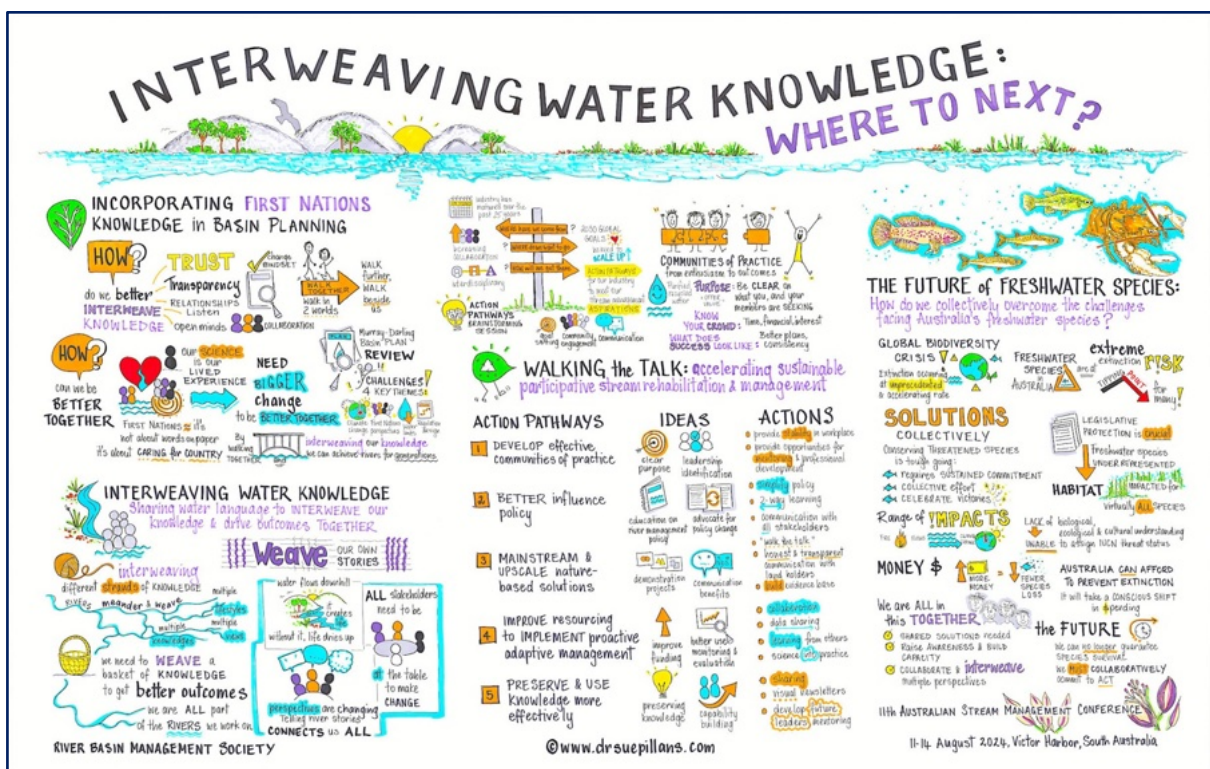 INTERWEAVING WATER KNOWLEDGE:
WHERE TO NEXT?
INCORPORATING FIRST NATIONS
KNOWLEDGE in BASIN PLANNING
HOW?
do we better
INTERWEAVE
KNOWLEDGE
TRUST
Transparency
RELATIONSHIPS
Listen
open minds
COLLABORATION
Change
MINDSET
WALK
TOGETHER
walk in
2 worlds
WALK
further,
WALK
beside
us
HOW?
can we be
BETTER
TOGETHER
OUR SCIENCE
is OUR
LIVED
EXPERIENCE
FIRST NATIONS it's
not about words on paper
it's about CARING for COUNTRY
NEED
BIGGER
change
to be BETTER TOGETHER
Murray-Darling
Basin PLAN
REVIEW
CHALLENGES
4 KEY THEMES
By
walking
TOGETHER
interweaving our knowledge
we can achieve rivers for generations
INTERWEAVING WATER KNOWLEDGE
Sharing water language to INTERWEAVE our
knowledge & drive outcomes TOGETHER
Weave OUR OWN
STORIES
interweaving
different strands of KNOWLEDGE
RIVERS meander & weave
multiple
lifestyles
multiple
knowledges
multiple
views
we need to WEAVE a
basket of KNOWLEDGE
to get better outcomes
we are ALL part
of the RIVERS we work on
water flows downhill
it creates
life
without it, life dries up
perspectives are changing
Telling river stories
CONNECTS us ALL
ALL stakeholders
need to be
at the table
to make
CHANGE
RIVER BASIN MANAGEMENT SOCIETY
industry has
past 25 years
increasing
COLLABORATION
interdisciplinary
where have we come from?
where do we want to go?
2030 GLOBAL
GOALS
SCALE UP!
ACTION PATHWAYS
for our industry
ASPIRATIONS
ACTION
PATHWAYS
BRAINSTORMING
SESSION
goal
setting
community
engagement
communication
COMMUNITIES of PRACTICE
from enthusiasm to outcomes
PURPOSE: Be CLEAR on
what you, and your
members are SEEKING
KNOW
YOUR CROWD: Time, financial interest
WHAT DOES
SUCCESS LOOK LIKE: Better plans,
consistency
WALKING the TALK: accelerating sustainable
participative stream rehabilitation & management
ACTION PATHWAYS
1 DEVELOP effective
communities of practice
2 BETTER influence
policy
3 MAINSTREAM &
UPSCALE nature-
based solutions
4 IMPROVE resourcing
to IMPLEMENT proactive
adaptive management
5 PRESERVE & USE
Knowledge more
effectively
IDEAS
clear
purpose
leadership
identification
education on
river management
policy
advocate for
policy change
demonstration
projects
communication
benefits
improve
funding
better use of
monitoring &
evaluation
preserving
knowledge
capability
building
ACTIONS
provide stability in workplace
provide opportunities for
mentoring & professional
development
simplify policy
2-way learning
communication with
all stakeholders
"walk the talk"
honest & transparent
communication with
land holders
build evidence base
collaboration
data sharing
learning from others
science into practice
sharing
visual newsletters
develop future
leaders mentoring
©www.drsuepillans.com
THE FUTURE OF FRESHWATER SPECIES:
How do we collectively overcome the challenges
facing Australia's freshwater species?
GLOBAL BIODIVERSITY
CRISIS
Extinction occurring
at unprecedented
& accelerating rate
FRESHWATER
SPECIES
in
AUSTRALIA
are at
extreme
extinction RISK
TIPPING POINT
for
many!
SOLUTIONS
COLLECTIVELY
Conserving THREATENED SPECIES
is tough going:
REQUIRES SUSTAINED COMMITMENT
COLLECTIVE effort
CELEBRATE victories
LEGISLATIVE
PROTECTION is crucial
Freshwater species
UNDER REPRESENTED
HABITAT IMPACTED for
virtually ALL SPECIES
Range of IMPACTS
LACK of biological,
ecological & cultural understanding
UNABLE to assign IUCN threat status
MONEY $
MORE
MONEY
FEWER
SPECIES
LOSS
AUSTRALIA CAN AFFORD
TO PREVENT EXTINCTION
It will take a CONSCIOUS SHIFT
in $pending
We are ALL in
this TOGETHER
SHARED SOLUTIONS needed
Raise AWARENESS & BUILD
CAPACITY
COLLABORATE & interweave
multiple perspectives
the FUTURE
We can no longer guarantee
SPECIES SURVIVAL
We MUST COLLABORATIVELY
commit to ACT
11th AUSTRALIAN STREAM MANAGEMENT CONFERENCE
11-14 August 2024, Victor Harbor, South Australia